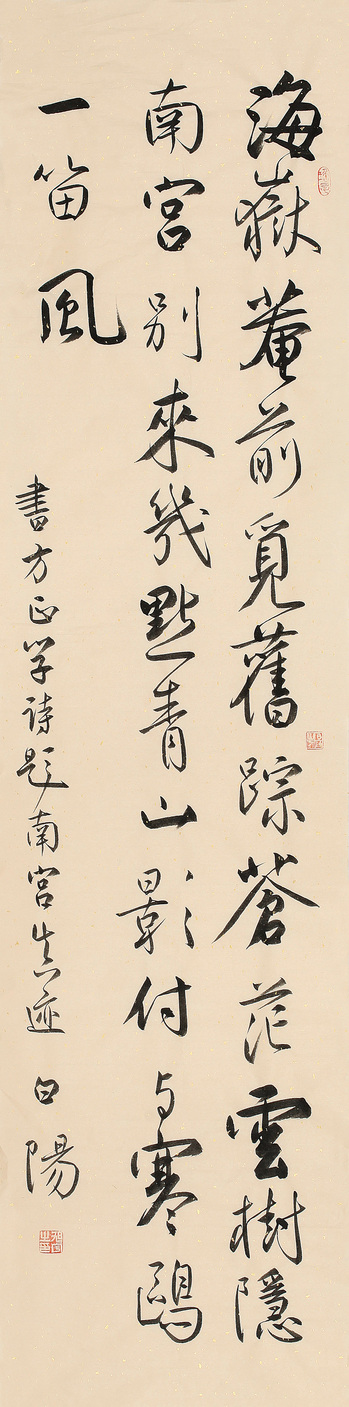 海嶽菴前覓舊踪蒼茫雲樹隱
南宮別來幾點青山影付与寒鷗
一笛風
書方正学詩題南宮真迹 白陽